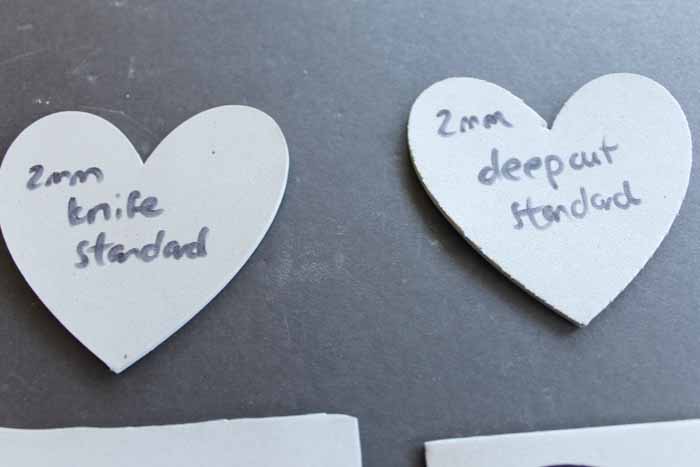 2mm
knife
standard
2mm
deepcut
standard